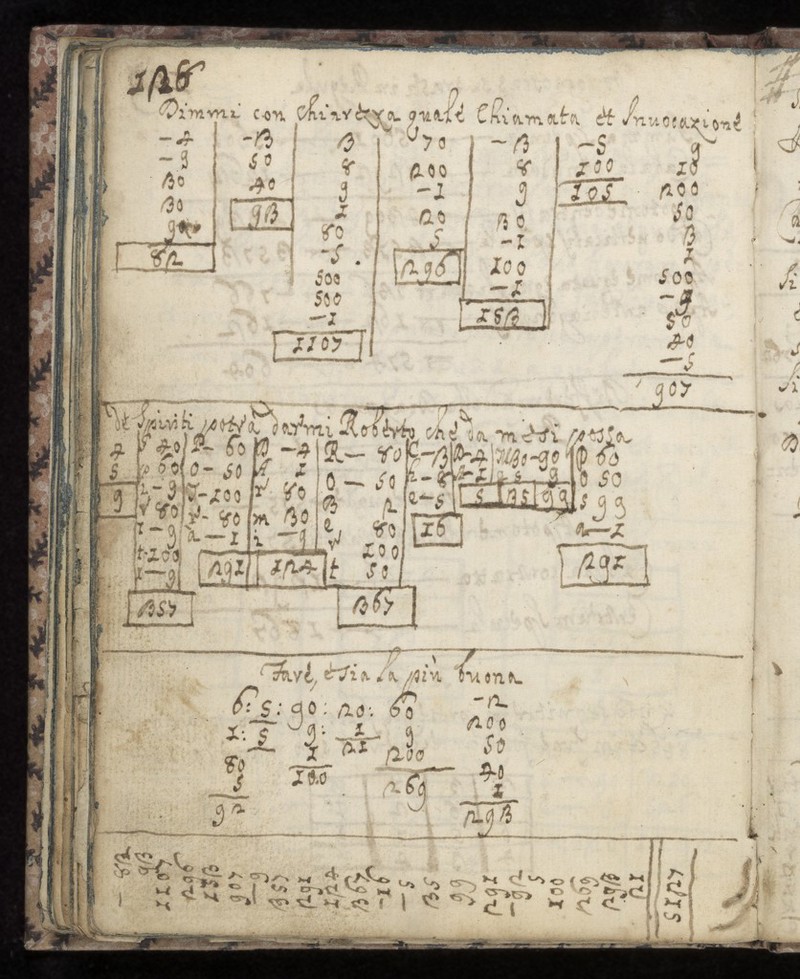 126
Dimmi con Chiarezza quale Chiamata et Invocazione
-4 -3 3 70 -3 -5 9
-9 50 8 200 8 100 40
30 40 9 -1 9 105 200
30 93 1 20 30 50
9 80 5 -1 3
82 -5 296 100 1
500 -1 500
500 153 -9
-1 50
1107 40
-5
907
dè Spiriti potrà darmi Roberto che da mesi possa
4 S 90 P- 60 D -4 R- 80 C-3 D-4 M30-90 P 60
5 p 60 O- 50 A 1 O- 50 h-8 A-1 e 5 9 O 50
9 i-9 T-100 r 80 B 2 e-5 5 35 99 S 99
r 80 r- 80 m 30 e 5 16 a-1
i-9 a-1 i-9 r 80 291
t-100 291 124 t 100
i-9 50
357 367
Fare, e sia la più buona
6: 5: 90: 20: 60 -2
1: 5 9: 1 9 200
80 1 21 200 50
5 100 269 40
92 1
293
-82 93 1107 296 153 907 -9 357 291 124 367 -16 -5 35 99 291 -92 5 100 269 293 21 5127